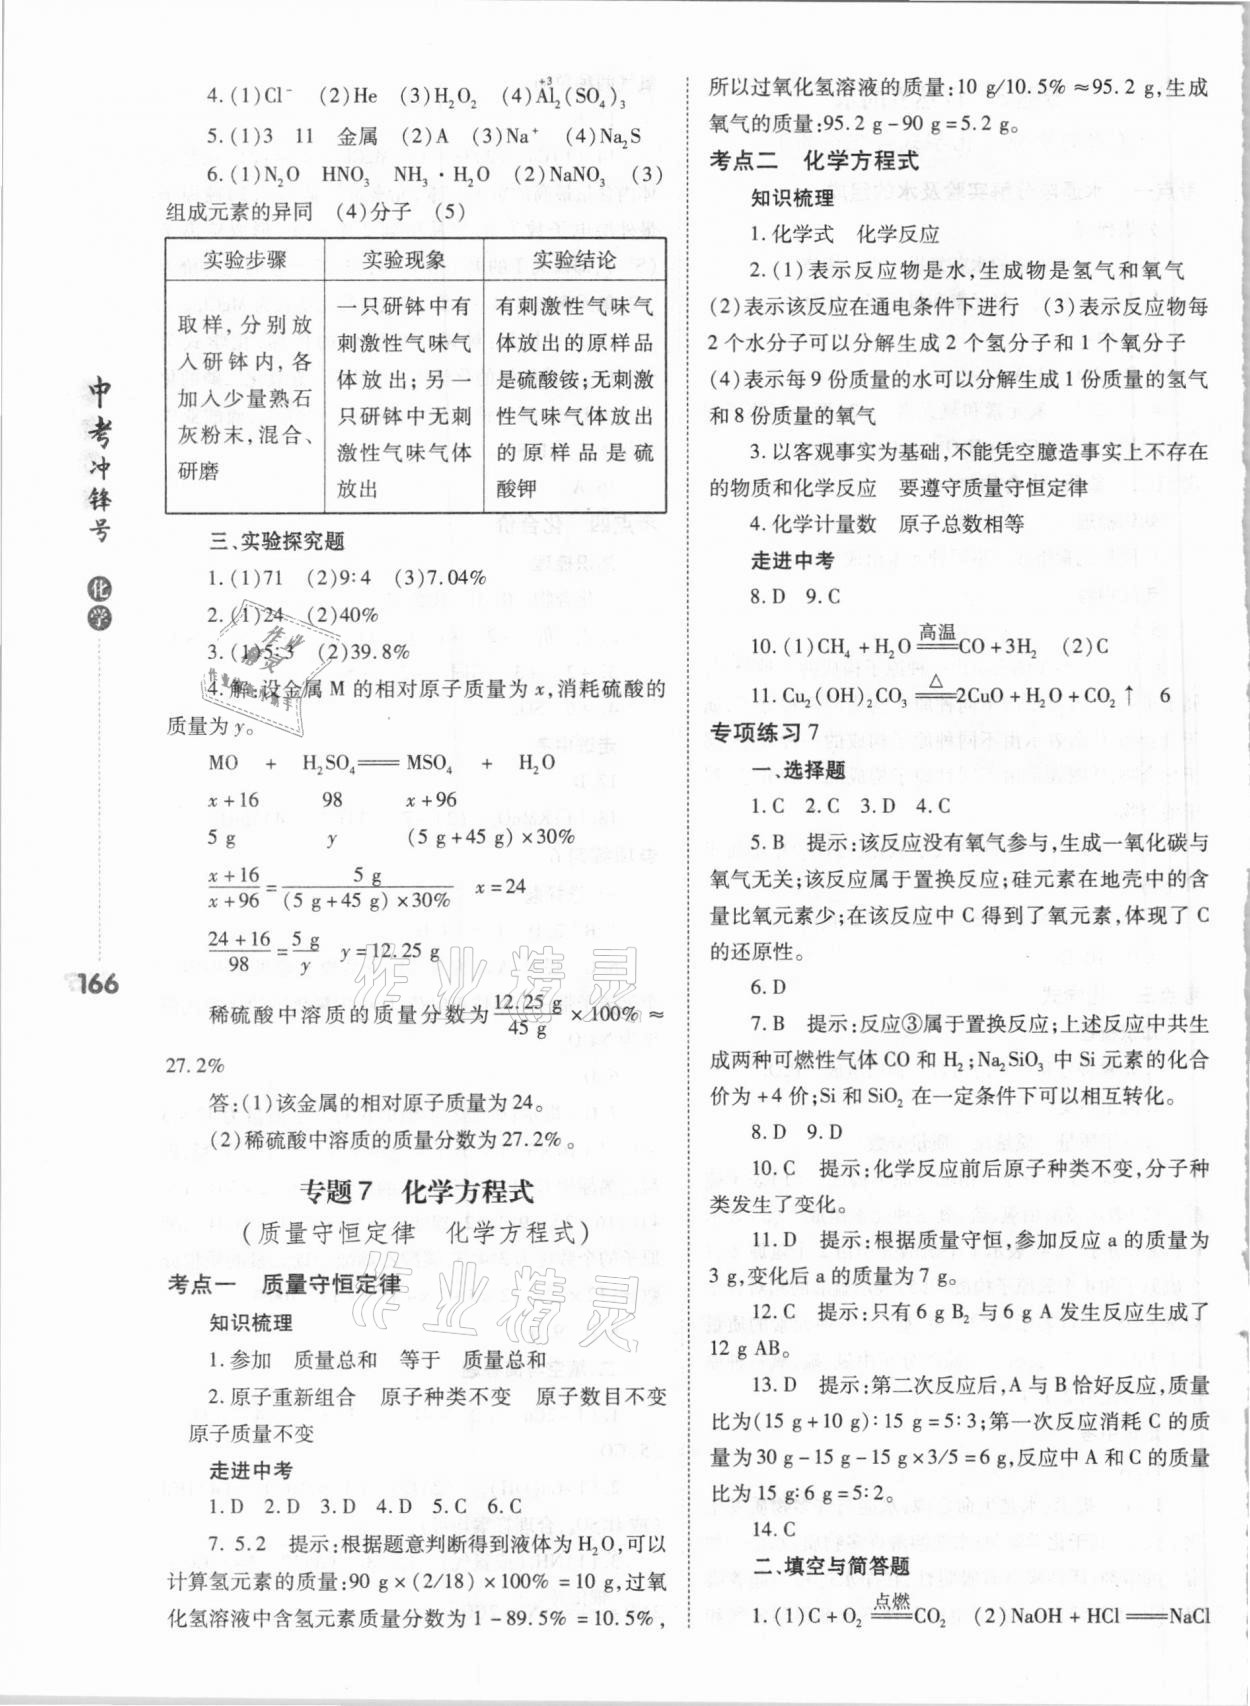 4.(1)Cl⁻ (2)He (3)H₂O₂ (4)Al₂(SO₄)₃ (Al上标+3)
5.(1)3 11 金属 (2)A (3)Na⁺ (4)Na₂S
6.(1)N₂O HNO₃ NH₃·H₂O (2)NaNO₃ (3)
组成元素的异同 (4)分子 (5)
实验步骤 实验现象 实验结论
取样,分别放
入研钵内,各
加入少量熟石
灰粉末,混合、
研磨
一只研钵中有
刺激性气味气
体放出;另一
只研钵中无刺
激性气味气体
放出
有刺激性气味气
体放出的原样品
是硫酸铵;无刺激
性气味气体放出
的原样品是硫
酸钾
三、实验探究题
1.(1)71 (2)9∶4 (3)7.04%
2.(1)24 (2)40%
3.(1)5∶3 (2)39.8%
4.解:设金属 M 的相对原子质量为 x,消耗硫酸的
质量为 y。
MO + H₂SO₄══MSO₄ + H₂O
x+16 98 x+96
5 g y (5 g+45 g)×30%
(x+16)/(x+96)=5 g/((5 g+45 g)×30%) x=24
(24+16)/98=5 g/y y=12.25 g
稀硫酸中溶质的质量分数为 12.25 g/45 g ×100%≈
27.2%
答:(1)该金属的相对原子质量为24。
(2)稀硫酸中溶质的质量分数为27.2%。
专题7 化学方程式
(质量守恒定律 化学方程式)
考点一 质量守恒定律
知识梳理
1.参加 质量总和 等于 质量总和
2.原子重新组合 原子种类不变 原子数目不变
原子质量不变
走进中考
1.D 2.D 3.D 4.D 5.C 6.C
7.5.2 提示:根据题意判断得到液体为H₂O,可以
计算氢元素的质量:90 g×(2/18)×100%=10 g,过氧
化氢溶液中含氢元素质量分数为 1-89.5%=10.5%,
所以过氧化氢溶液的质量:10 g/10.5%≈95.2 g,生成
氧气的质量:95.2 g-90 g=5.2 g。
考点二 化学方程式
知识梳理
1.化学式 化学反应
2.(1)表示反应物是水,生成物是氢气和氧气
(2)表示该反应在通电条件下进行 (3)表示反应物每
2个水分子可以分解生成2个氢分子和1个氧分子
(4)表示每9份质量的水可以分解生成1份质量的氢气
和8份质量的氧气
3.以客观事实为基础,不能凭空臆造事实上不存在
的物质和化学反应 要遵守质量守恒定律
4.化学计量数 原子总数相等
走进中考
8.D 9.C
10.(1)CH₄+H₂O═高温═CO+3H₂ (2)C
11.Cu₂(OH)₂CO₃═△═2CuO+H₂O+CO₂↑ 6
专项练习7
一、选择题
1.C 2.C 3.D 4.C
5.B 提示:该反应没有氧气参与,生成一氧化碳与
氧气无关;该反应属于置换反应;硅元素在地壳中的含
量比氧元素少;在该反应中 C 得到了氧元素,体现了 C
的还原性。
6.D
7.B 提示:反应③属于置换反应;上述反应中共生
成两种可燃性气体 CO 和 H₂;Na₂SiO₃ 中 Si 元素的化合
价为+4价;Si 和 SiO₂ 在一定条件下可以相互转化。
8.D 9.D
10.C 提示:化学反应前后原子种类不变,分子种
类发生了变化。
11.D 提示:根据质量守恒,参加反应 a 的质量为
3 g,变化后 a 的质量为 7 g。
12.C 提示:只有 6 g B₂ 与 6 g A 发生反应生成了
12 g AB。
13.D 提示:第二次反应后,A 与 B 恰好反应,质量
比为(15 g+10 g)∶15 g=5∶3;第一次反应消耗 C 的质
量为30 g-15 g-15 g×3/5=6 g,反应中 A 和 C 的质量
比为15 g∶6 g=5∶2。
14.C
二、填空与简答题
1.(1)C+O₂═点燃═CO₂ (2)NaOH+HCl══NaCl
中考冲锋号 化学
166
作业精灵
作业精灵
作业精灵